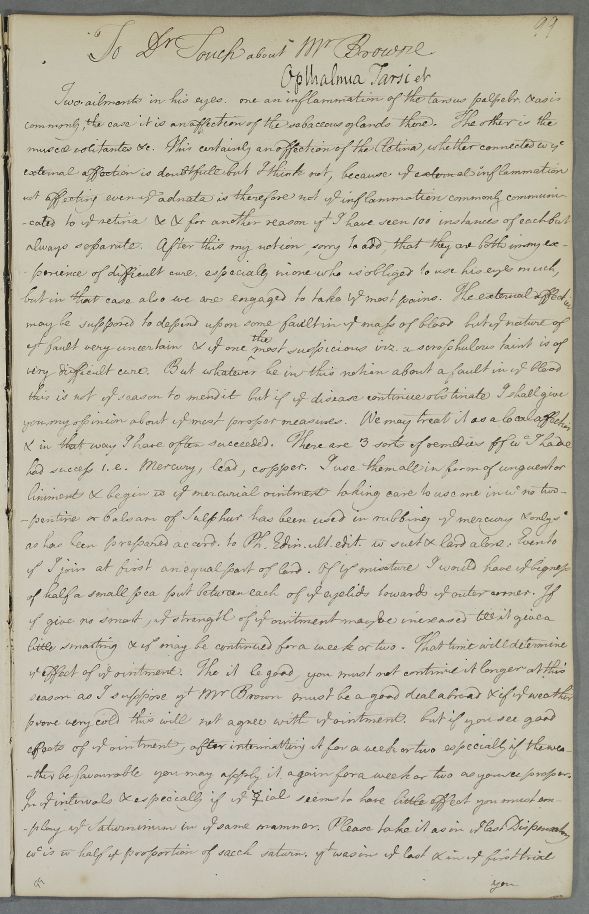 99
To Dr Touch about Mr Browne
Opthalmia Tarsi et
Two ailments in his eyes. one an inflammation of the tarsus palpebr. & as is
commonly the case it is an affection of the sebaceous glands there. The other is the
muscæ volitantes &c. This certainly an affection of the Retina, whether connected w ye
external affection is doubtfull but I think not, because ye external inflammation
not affecting even ye adnata is therefore not ye inflammation commonly communi-
-cated to ye retina & & for another reason yt I have seen 100 instances of each but
always separate. After this my notion, sorry to add, that they are both in my ex-
-perience of difficult cure. especially in one who is obliged to use his eyes much,
but in that case also we are engaged to take ye most pains. The external affectn
may be supposed to depend upon some fault in ye mass of blood but ye nature of
yt fault very uncertain & if one the most suspicious viz. a scrophulous taint is of
very difficult cure. But whatever be in this notion about a fault in ye blood
this is not ye season to mend it but if ye disease continue obstinate I shall give
you my opinion about ye most proper measures. We may treat it as a local affection
& in that way I have often succeeded. There are 3 sorts of remedies of wc I have
had success i.e. Mercury, lead, copper. I use them all in form of unguent or
liniment & begin w ye mercurial ointment taking care to use one in wc no tur-
-pentine or balsam of Sulphur has been used in rubbing ye mercury & only
as has been prepared accord. to Ph. Edin. ult. edit. w suet & lard alone. Even to
yt I join at first an equal part of lard. Of ye mixture I would have ye bigness
of half a small pea put between each of ye eyelids towards ye outer corner. If
it give no smart, ye strength of ye ointment may be increased till it give a
little smarting & if may be continued for a week or two. That time will determine
ye effect of ye ointment. Tho it be good you must not continue it longer at this
season as I suppose yt Mr Brown must be a good deal abroad & if ye weather
prove very cold this will not agree with ye ointment. but if you see good
effects of ye ointment, after intermitting it for a week or two especially if the wea-
-ther be favourable you may apply it again for a week or two as you see proper.
In ye intervals & especially if ye trial seems to have little effect you must em-
-ploy ye Saturninum in ye same manner. Please take it as in ye last Dispensatory
wc is w half ye proportion of sacch saturn. yt was in ye last & in ye first trial
you